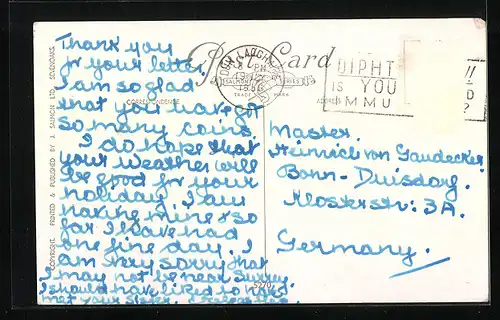 Post Card
CORRESPONDENCE
ADDRESS
SALMON SERIES
TRADE MARK
DUN LAOGHAIRE
DIPHT
IS YOU
MMU
D
?
COPYRIGHT. PRINTED & PUBLISHED BY J. SALMON LTD. SEVENOAKS.
5270
Thank you
for your letter.
I am so glad
that you have got
so many coins.
I do hope that
your weather will
be good for your
holiday. I am
having mine & so
far I have had
one fine day. I
am very sorry that
I may not be near Surrey
I should have liked to have
met your sister.
Master.
Heinrich von Gaudecker.
Bonn-Duisdorf.
Klosterstr: 3A.
Germany.